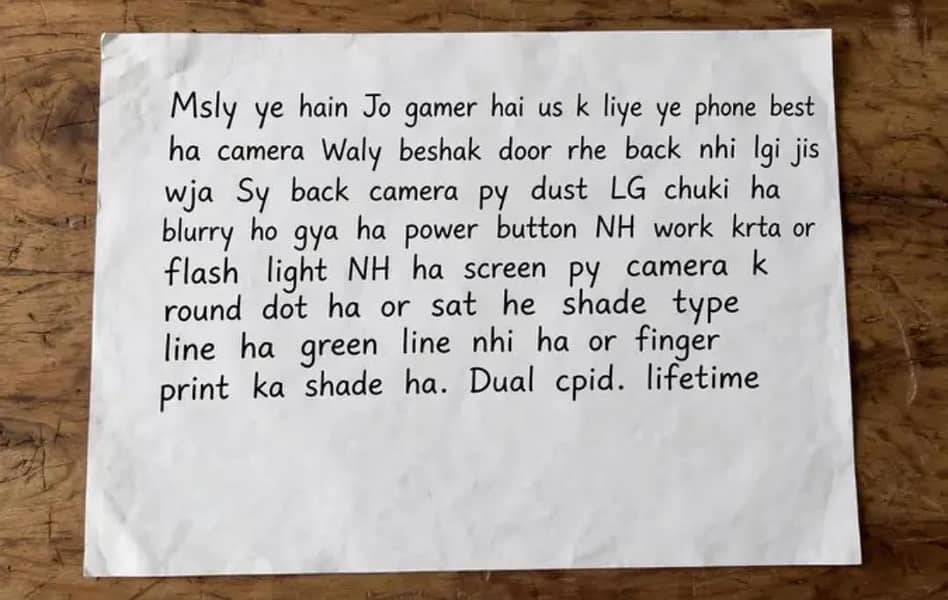 Msly ye hain Jo gamer hai us k liye ye phone best
ha camera Waly beshak door rhe back nhi lgi jis
wja Sy back camera py dust LG chuki ha
blurry ho gya ha power button NH work krta or
flash light NH ha screen py camera k
round dot ha or sat he shade type
line ha green line nhi ha or finger
print ka shade ha. Dual cpid. lifetime